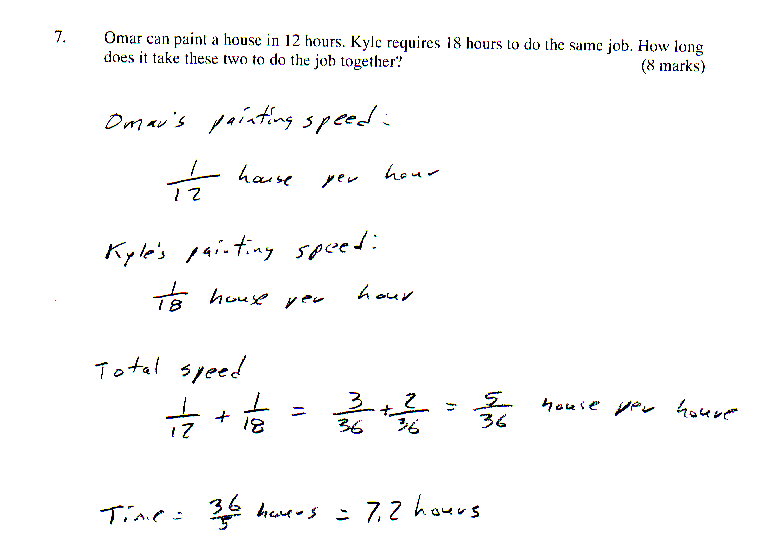 7. Omar can paint a house in 12 hours. Kyle requires 18 hours to do the same job. How long
does it take these two to do the job together? (8 marks)
Omar's painting speed:
1/12 house per hour
Kyle's painting speed:
1/18 house per hour
Total speed
1/12 + 1/18 = 3/36 + 2/36 = 5/36 house per hour
Time = 36/5 hours = 7.2 hours